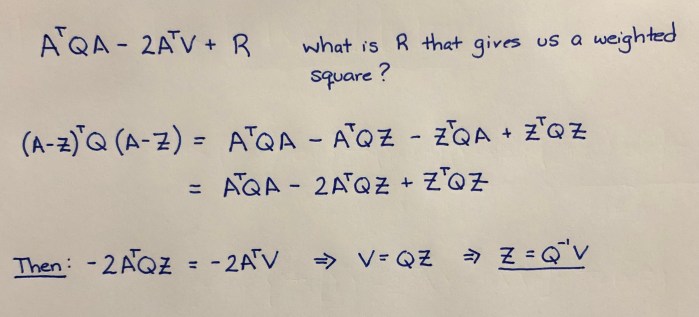 AᵀQA - 2AᵀV + R what is R that gives us a weighted
square?
(A-Z)ᵀQ(A-Z) = AᵀQA - AᵀQZ - ZᵀQA + ZᵀQZ
= AᵀQA - 2AᵀQZ + ZᵀQZ
Then: -2AᵀQZ = -2AᵀV ⇒ V = QZ ⇒ Z = Q⁻¹V